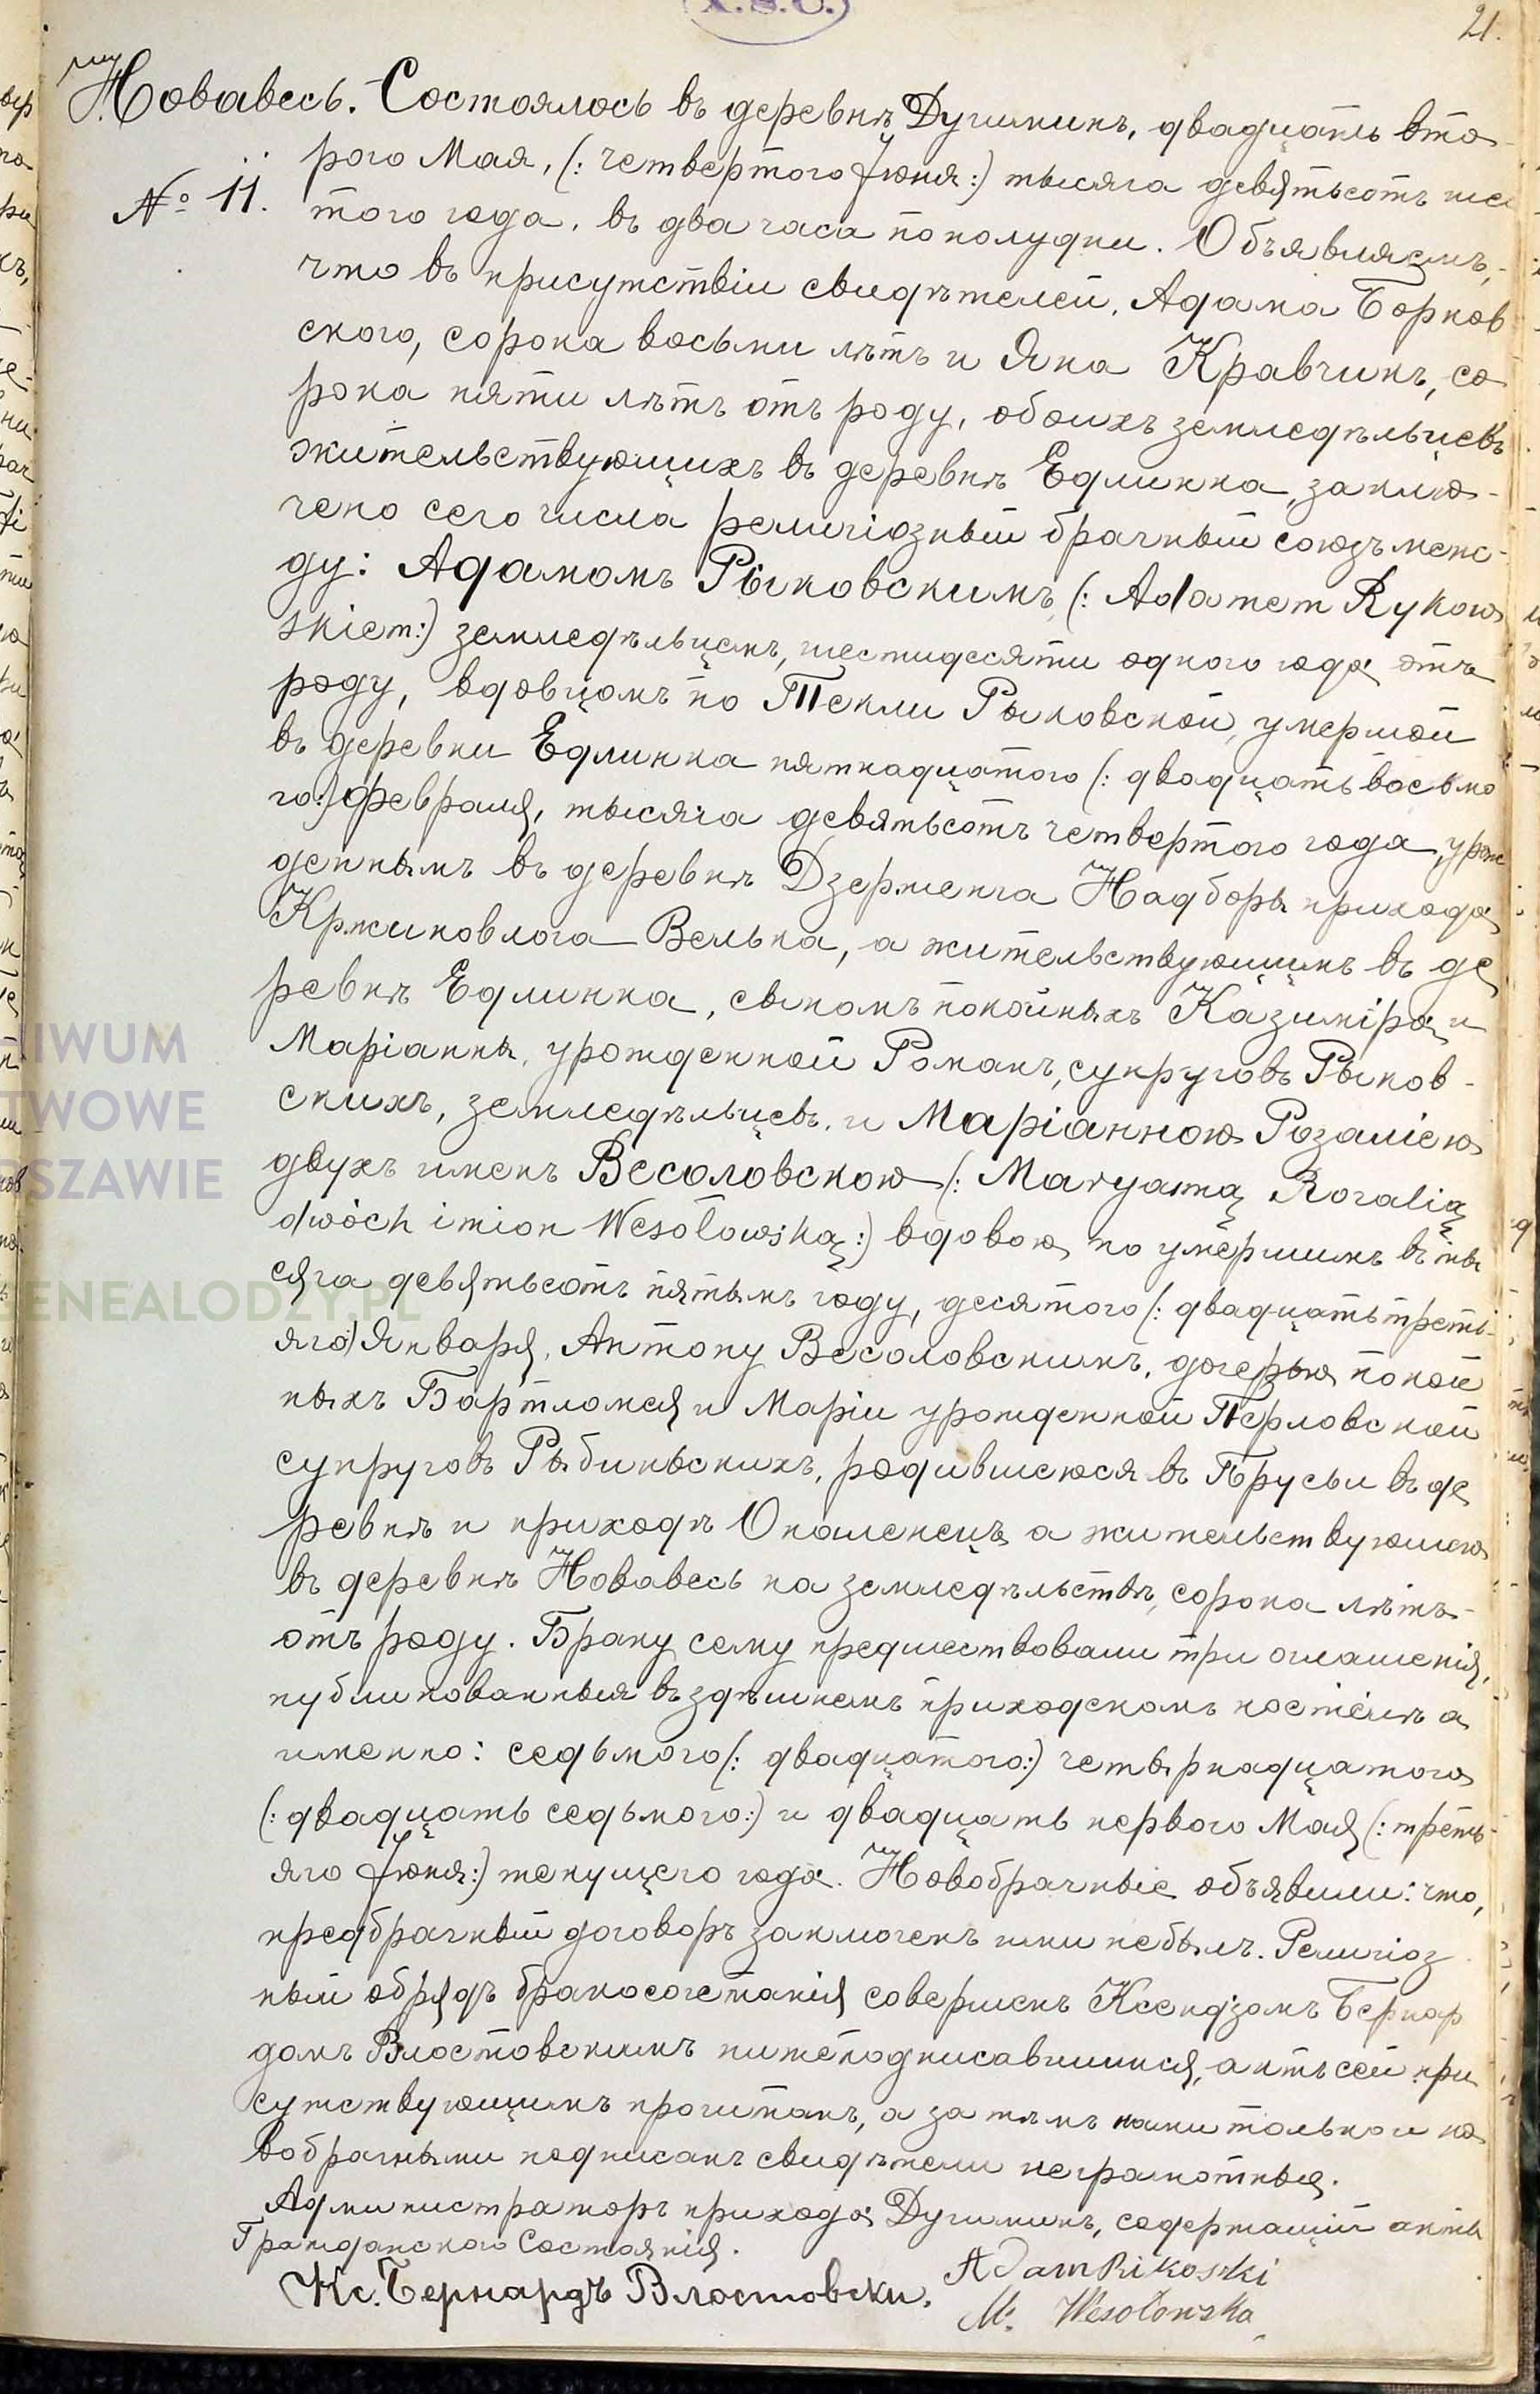 X.S.U.
21.
Новавесь. Состоялось въ деревнѣ Дучиминъ, двадцать вто
№ 11.
раго Мая, (: четвертаго Іюня:) тысяча девятьсотъ шес
того года, въ два часа пополудни. Объявляемъ,
что въ присутствіи свидѣтелей, Адама Борков
скаго, сорока восьми лѣтъ и Яна Кравчикъ, со
рока пяти лѣтъ отъ роду, обоихъ земледѣльцевъ
жительствующихъ въ деревнѣ Едлинка, заклю-
чено сего числа религіозный брачный союзъ меж-
ду: Адамомъ Рыковскимъ, (: Adamem Rykow
skiem:) земледѣльцемъ, шестидесяти одного года отъ
роду, вдовцомъ по Текли Рыковской, умершой
въ деревни Едлинка пятнадцатого (: двадцать восьмо
го:) февраля, тысяча девятьсотъ четвертого года, урож
деннымъ въ деревнѣ Дзерженга Надборы прихода
Кржиновлога-Велька, а жительствующимъ въ де
ревнѣ Едлинка, сыномъ покойныхъ Казиміра и
Маріанны, урожденной Романъ, супруговъ Рыков-
скихъ, земледѣльцевъ, и Маріанною Розаліею
двухъ именъ Весоловскою (: Maryanną Rozalią
dwóch imion Wesołowską:) вдовою, по умершимъ въ ты
сяча девятьсотъ пятымъ году, десятого (: двадцать треть-
яго) Января, Антону Весоловскимъ, дочерью покой
ныхъ Бартломея и Маріи урожденной Перловской
супруговъ Рыбиньскихъ, родившеюся въ Прусьи въ де
ревнѣ и приходѣ Опаленецъ а жительствующею
въ деревнѣ Новавесь на земледѣльствѣ, сорока лѣтъ
отъ роду. Браку сему предшествовали три оглашенія,
публикованныя въ здѣшнемъ приходскомъ костёлѣ а
именно: седьмого (: двадцатого:) четырнадцатого
(: двадцать седьмого:) и двадцать первого Мая (: треть-
яго Іюня:) текущего года. Новобрачные объявили: что,
предбрачный договоръ заключенъ ими небылъ. Религіоз
ный обрядъ бракосочетанія совершенъ Ксендзомъ Бернар
домъ Влостовскимъ нижеподписавшимся, актъ сей при
сутствующимъ прочитанъ, а за тѣмъ нами только и но
вобрачными подписанъ свидѣтели неграмотныя.
Администраторъ прихода Дучиминъ, содержащій акты
Гражданского Состоянія.
Кс. Бернардъ Влостовски.
Adam Rikoski
M. Wesołowska
IWUM
TWOWE
SZAWIE
ENEALODZY.PL